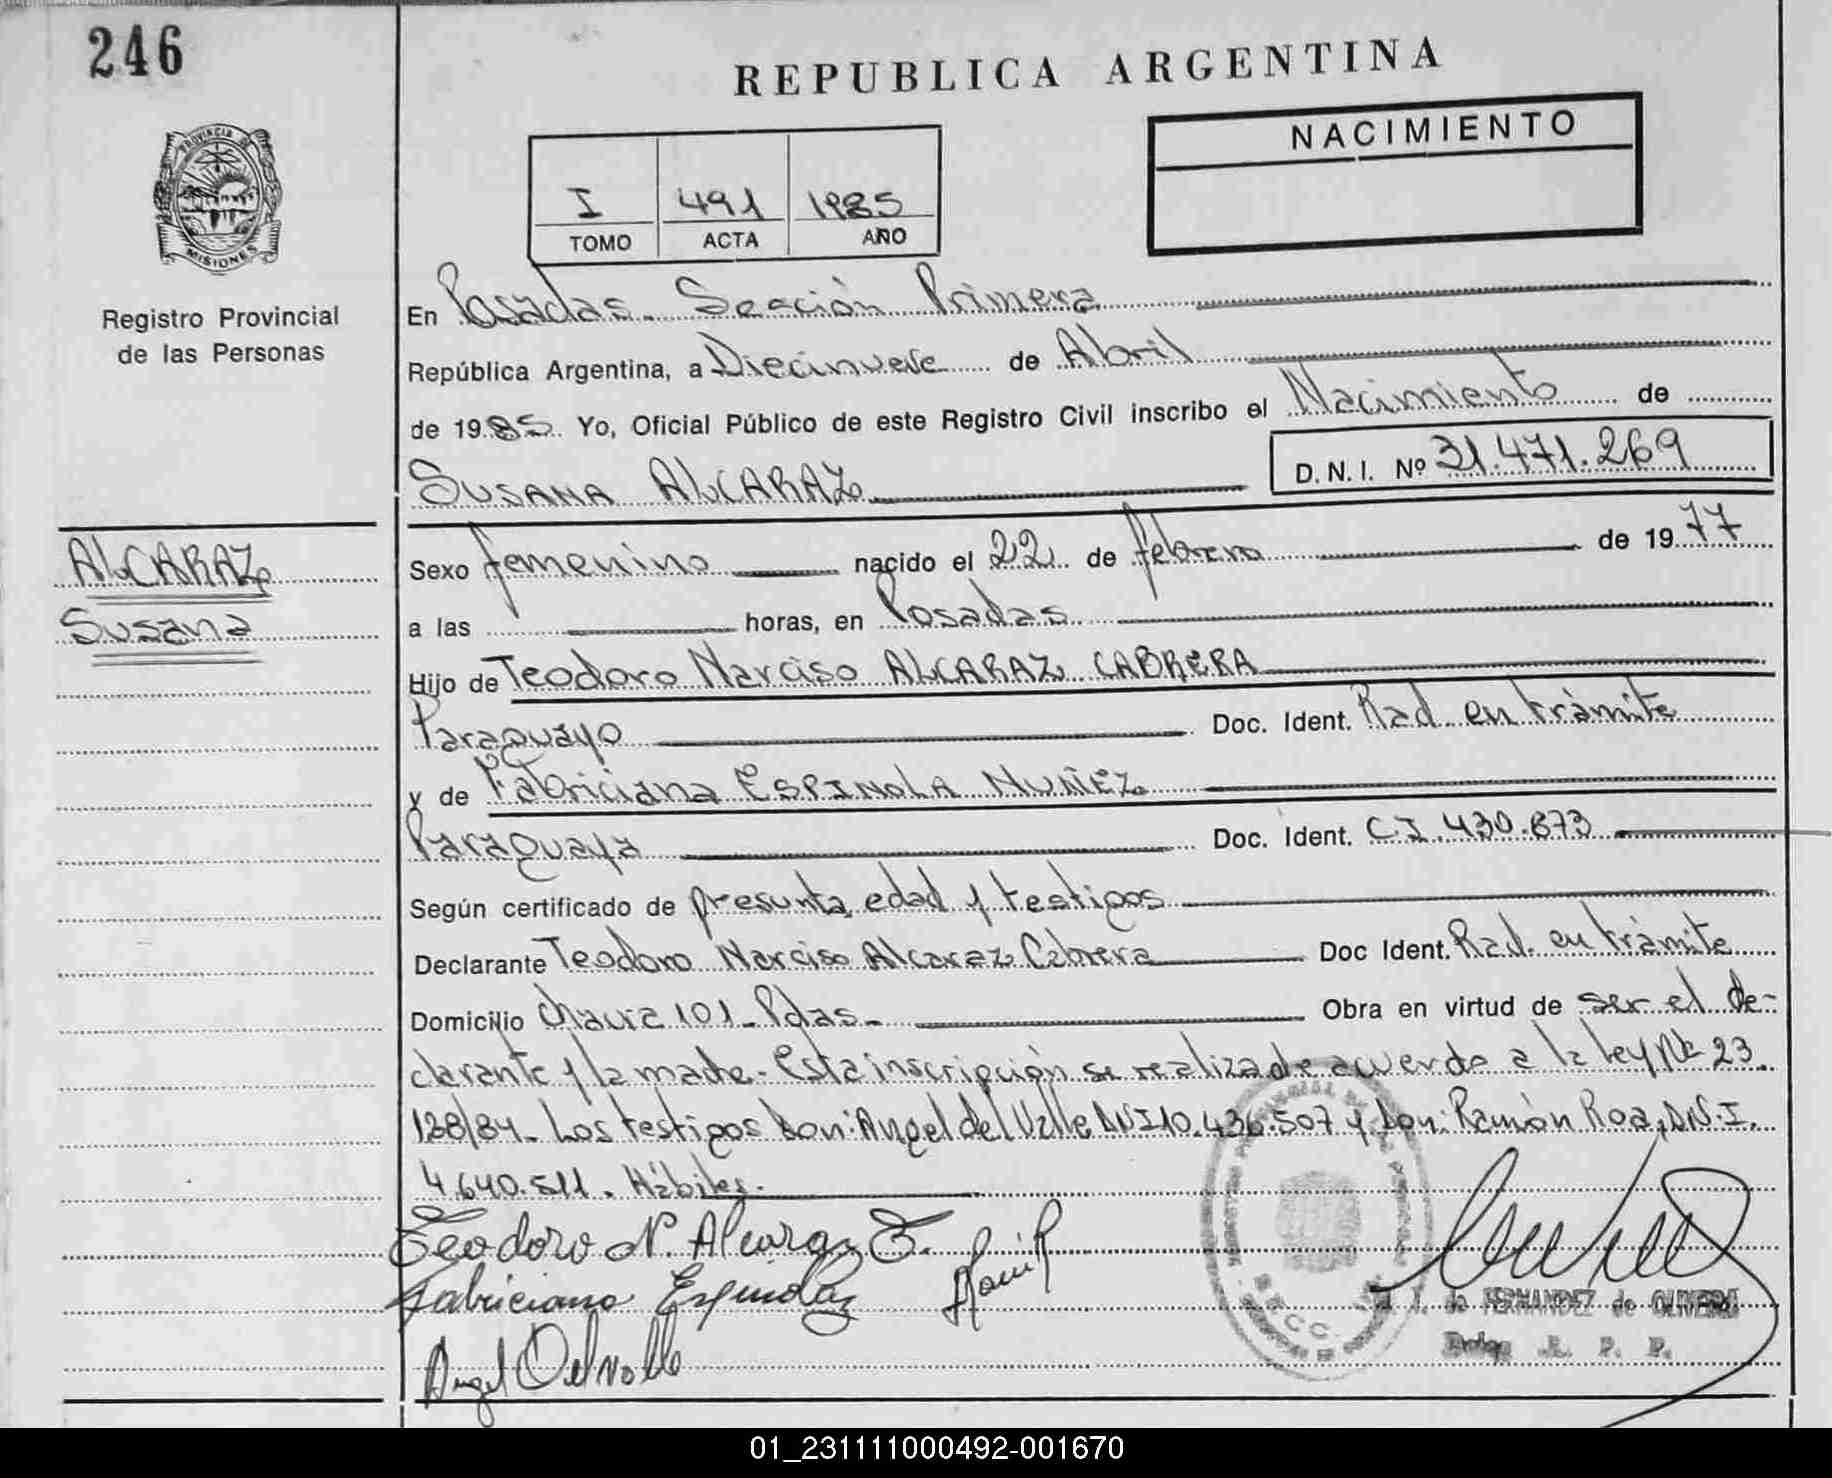 246
REPUBLICA ARGENTINA
NACIMIENTO
PROVINCIA DE
MISIONES
I 491 1985
TOMO ACTA AÑO
Registro Provincial
de las Personas
En Posadas. Sección Primera
República Argentina, a Diecinueve de Abril
de 1985 Yo, Oficial Público de este Registro Civil inscribo el Nacimiento de
SUSANA ALCARAZ D. N. I. Nº 31.471.269
ALCARAZ
Susana
Sexo femenino nacido el 22 de febrero de 1977
a las horas, en Posadas
Hijo de Teodoro Narciso ALCARAZ CABRERA
Paraguayo Doc. Ident. Rad. en trámite
y de Fabriciana ESPINOLA NUÑEZ
Paraguaya Doc. Ident. C.I. 430.873
Según certificado de presunta edad y testigos
Declarante Teodoro Narciso Alcaraz Cabrera Doc Ident. Rad. en trámite
Domicilio Chavez 101 - Pdas - Obra en virtud de ser el de-
clarante y la madre - Esta inscripción se realiza de acuerdo a la ley Nº 23.
128/84 - Los testigos Don: Angel del Valle DNI 10.436.507 y Don: Ramón Roa, D.N.I.
4.640.511. Hábiles.-
Teodoro N. Alcaraz
Fabriciana Espinola
Angel Del Valle
de FERNANDEZ de OLIVEIRA
Deleg. R. P. P.
01_231111000492-001670